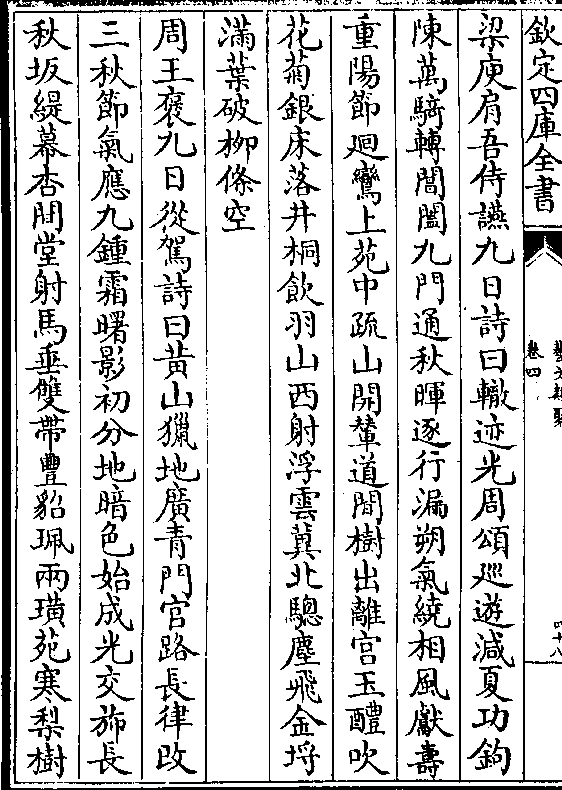 欽定四庫全書
藝文類聚
卷四
四十八
梁庾肩吾侍讌九日詩曰轍迹光周頌巡遊減夏功鉤
陳萬騎轉閶闔九門通秋暉逐行漏朔氣繞相風獻壽
重陽節廻鸞上苑中疏山開輦道間樹出離宮玉醴吹
花菊銀床落井桐飲羽山西射浮雲冀北驄塵飛金埒
滿葉破柳條空
周王褒九日從駕詩曰黃山獵地廣青門官路長律改
三秋節氣應九鍾霜曙影初分地暗色始成光交斾長
秋坂緹幕杏閒堂射馬垂雙帶豐貂珮兩璜苑寒梨樹